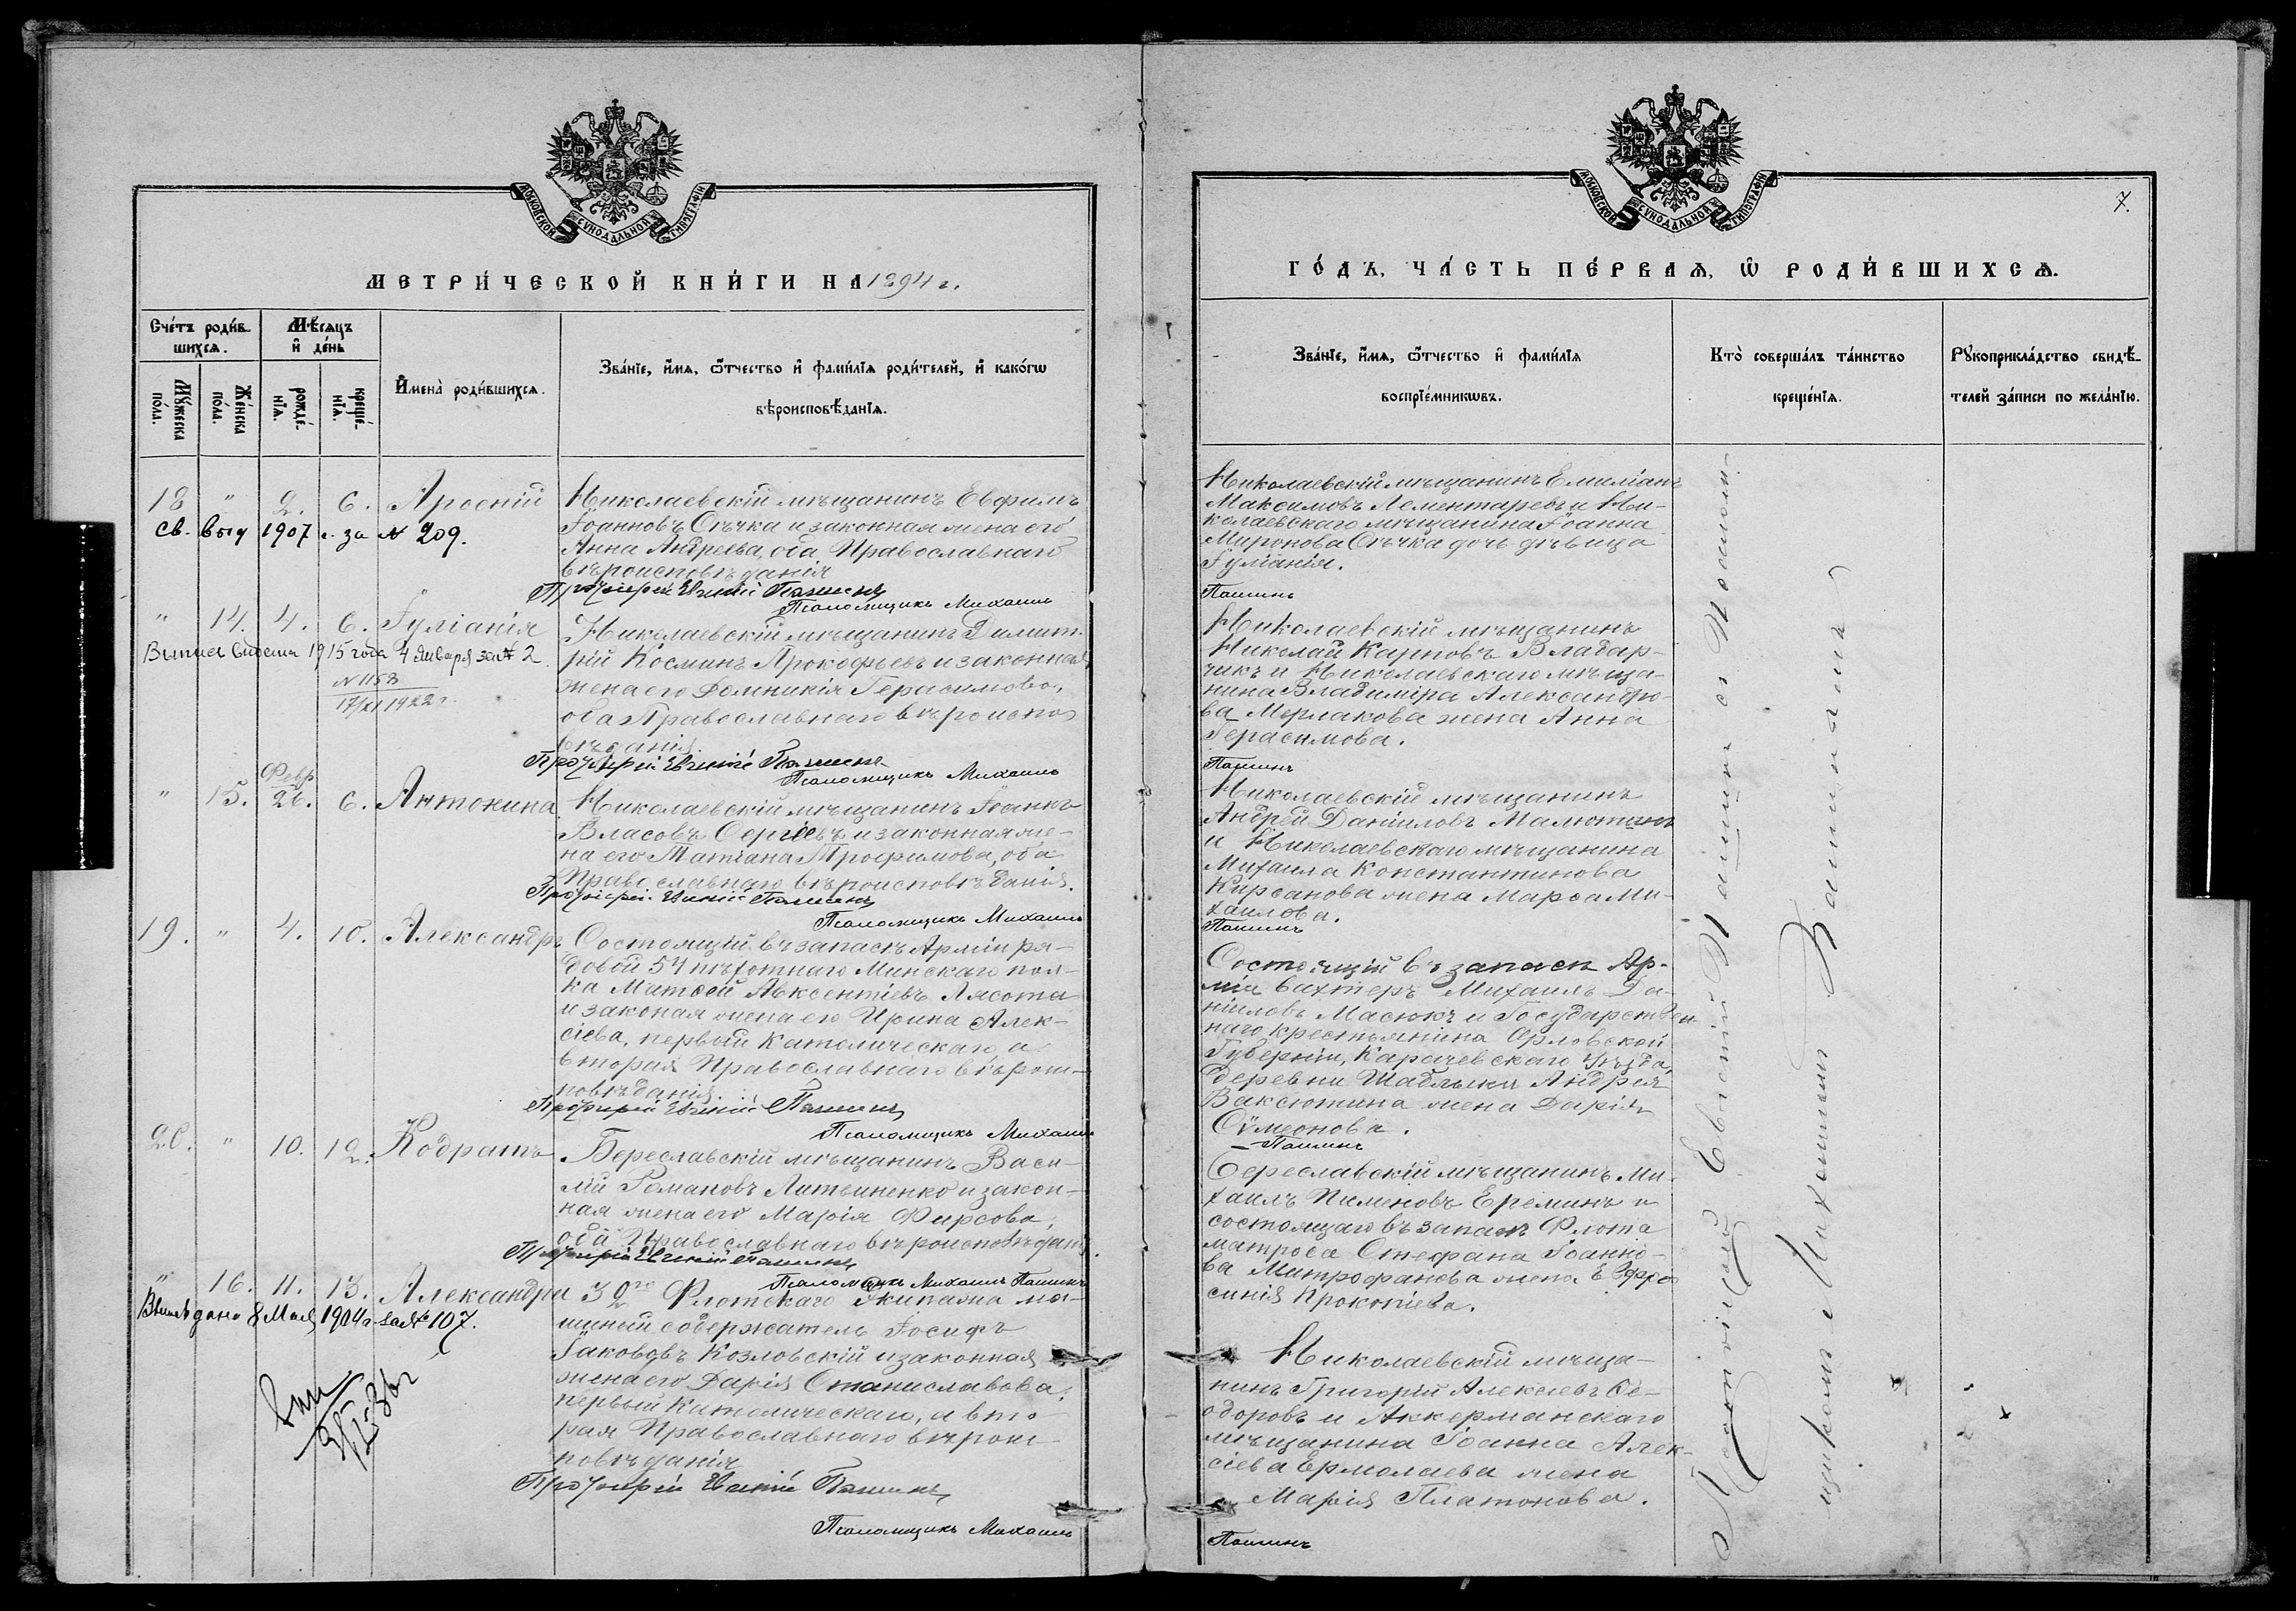 МОСКОВСКОЙ СУНОДАЛЬНОЙ ТИПОГРАФІИ
МЕТРИ́ЧЕСКОЙ КНИ́ГИ НА 1894 г.
Сче́тъ роди́вшихсѧ.
Мѣ́сѧцъ и҆ де́нь
Мꙋ́жеска по́ла.
Же́нска по́ла.
рожде́нїѧ.
креще́нїѧ.
И҆мена̀ роди́вшихсѧ.
Зва́нїе, и҆́мѧ, ѻ҆́тчество и҆ фами́лїѧ роди́телей, и҆ како́гѡ
вѣроисповѣ́данїѧ.
18 " 2. 6. Арсеній
Николаевскій мѣщанинъ Евфимъ
Іоанновъ Сѣчка и законная жена его
Анна Андреева, оба Православнаго
вѣроисповѣданія
св. выд 1907 г. за № 209.
Протоіерей Евсигній Пашинъ
Псаломщикъ Михаилъ
" 14. 4. 6. Іуліанія
Николаевскій мѣщанинъ Димит-
рій Косминъ Прокофьевъ и законная
жена его Домникія Герасимова,
оба Православнаго вѣроиспо-
вѣданія.
1915 года 4 января за № 2
№ 1158
1922 г.
Протоіерей Евсигній Пашинъ
Псаломщикъ Михаилъ
" 15. Февр 26. 6. Антонина
Николаевскій мѣщанинъ Іоаннъ
Власовъ Сергѣевъ и законная же-
на его Татіана Трофимова, оба
Православнаго вѣроисповѣданія.
Протоіерей Евсигній Пашинъ
Псаломщикъ Михаилъ
19. " 4. 10. Александръ
Состоящій въ запасѣ Арміи ря-
довой 54 пѣхотнаго Минскаго пол-
ка Матѳей Авксентіевъ Лясота
и законая жена его Ирина Алек-
сіева, первый Католическаго, а
вторая Православнаго вѣроис-
повѣданія.
Протоіерей Евсигній Пашинъ
Псаломщикъ Михаилъ
20. " 10. 12. Кодратъ
Береславскій мѣщанинъ Васи-
лій Романовъ Литвиненко и закон-
ная жена его Марія Фирсова,
оба Православнаго вѣроисповѣданія.
Протоіерей Евсигній Пашинъ
Псаломщикъ Михаилъ Пашинъ
" 16. 11. 13. Александра
32го Флотскаго Экипажа ма-
шиный содержатель Іосифъ
Іаковъ Козловскій и законная
жена его Дарія Станиславова,
первый Католическаго, а вто-
рая Православнаго вѣроис-
повѣданія
дано 8 Мая 1904 г. за № 107.
Протоіерей Евсигній Пашинъ
Псаломщикъ Михаилъ
МОСКОВСКОЙ СУНОДАЛЬНОЙ ТИПОГРАФІИ
7.
ГО́ДЪ, ЧА́СТЬ ПЕ́РВАѦ, Ѽ РОДИ́ВШИХСѦ.
Зва́нїе, и҆́мѧ, ѻ҆́тчество и҆ фами́лїѧ
воспрїе́мникѡвъ.
Кто̀ соверша́лъ та́инство
креще́нїѧ.
Рꙋкоприкла́дство свидѣ́-
телей за́писи по жела́нїю.
Николаевскій мѣщанинъ Емиліанъ
Максимовъ Лементаревъ и Ни-
колаевскаго мѣщанина Іоанна
Миронова Сѣчка дочь дѣвица
Іуліанія.
Пашинъ
Николаевскій мѣщанинъ
Николай Карповъ Владар-
чикъ и Николаевскаго мѣща-
нина Владиміра Александро-
ва Мерлакова жена Анна
Герасимова.
Пашинъ
Николаевскій мѣщанинъ
Андрей Даніиловъ Малютинъ
и Николаевскаго мѣщанина
Михаила Константинова
Кирсанова жена Марѳа Ми-
хаилова.
Пашинъ
Состоящій въ запасѣ Ар-
міи вахтеръ Михаилъ Да-
ніиловъ Масюкъ и Государствен-
наго крестьянина Орловской
Губерніи, Карачевскаго уѣзда,
деревни Шаблыки Андрея
Ваксютина жена Дарія
Сѵмеонова.
Пашинъ
Береславскій мѣщанинъ Ми-
хаилъ Пименовъ Ереминъ и
состоящаго въ запасѣ Флота
матроса Стефана Іоанно-
ва Митрофанова жена Евфро-
синія Прокопіева.
Николаевскій мѣща-
нинъ Григорій Алексіевъ Ѳе-
одоровъ и Аккерманскаго
мѣщанина Іоанна Алек-
сіева Ермолаева жена
Марія Платонова.
Пашинъ
Протоіерей Евсигній Пашинъ съ Псалом-
щикомъ Михаиломъ Пашинымъ